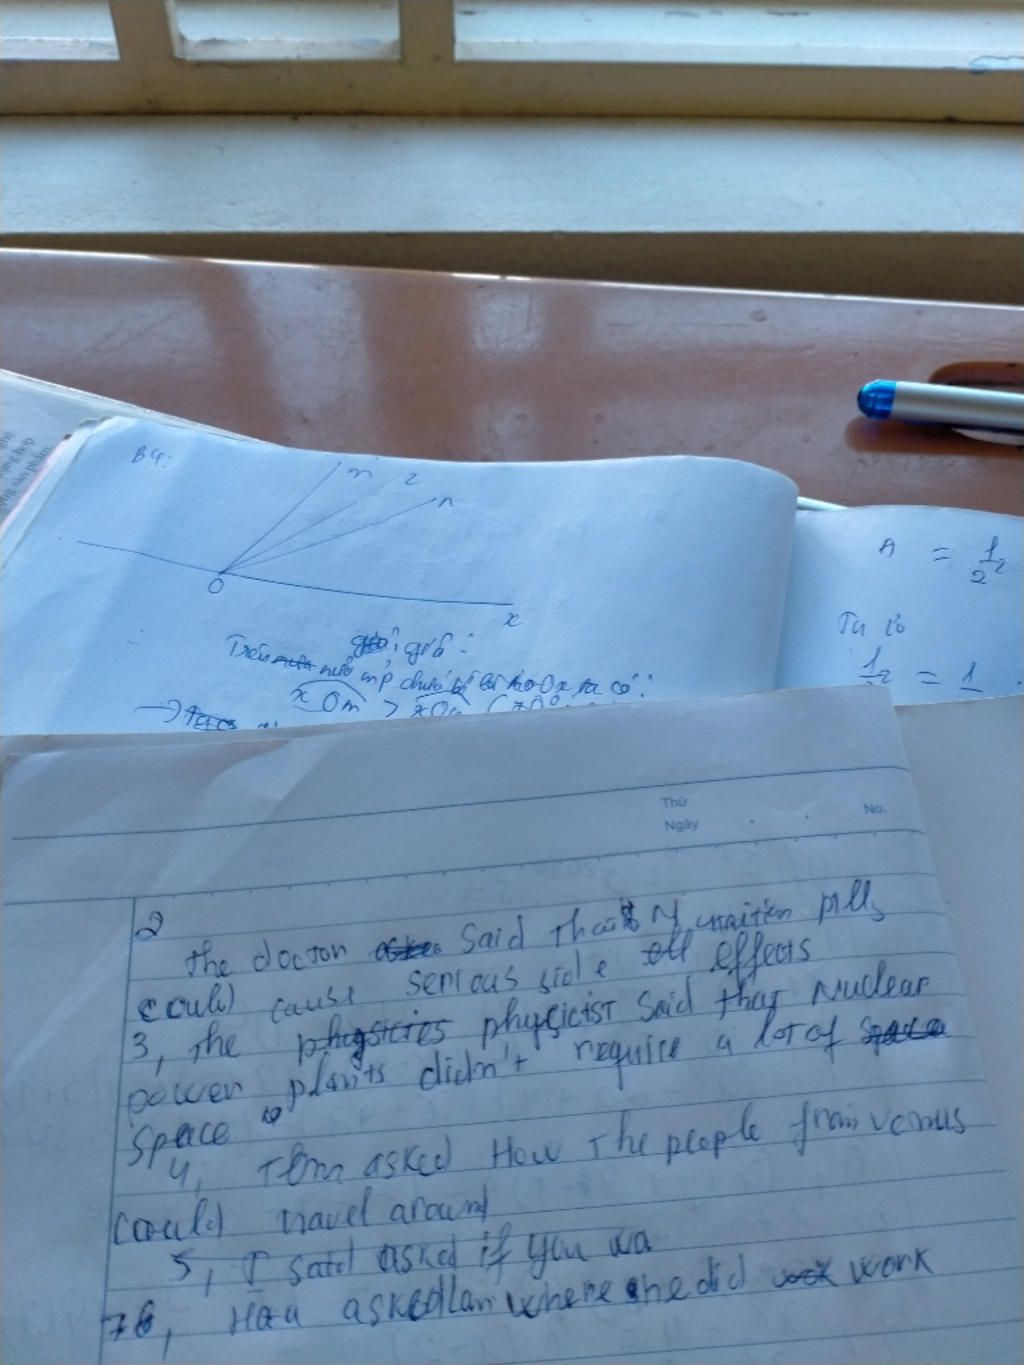 B4:
m
z
n
O
x
giả:
Trên nửa mp chứa tia Ox ta có:
xOm > xOn
A = 1/2²
Ta có
1/2² = 1
Thứ
Ngày
No.
2
the doctor said that pills
could cause serious side effects
3, the physicist said that Nuclear
power plants didn't require a lot of
space
4, Tom asked How The people from venus
could travel around
5, I said asked if you wa
76, Hoa asked lan where she did work